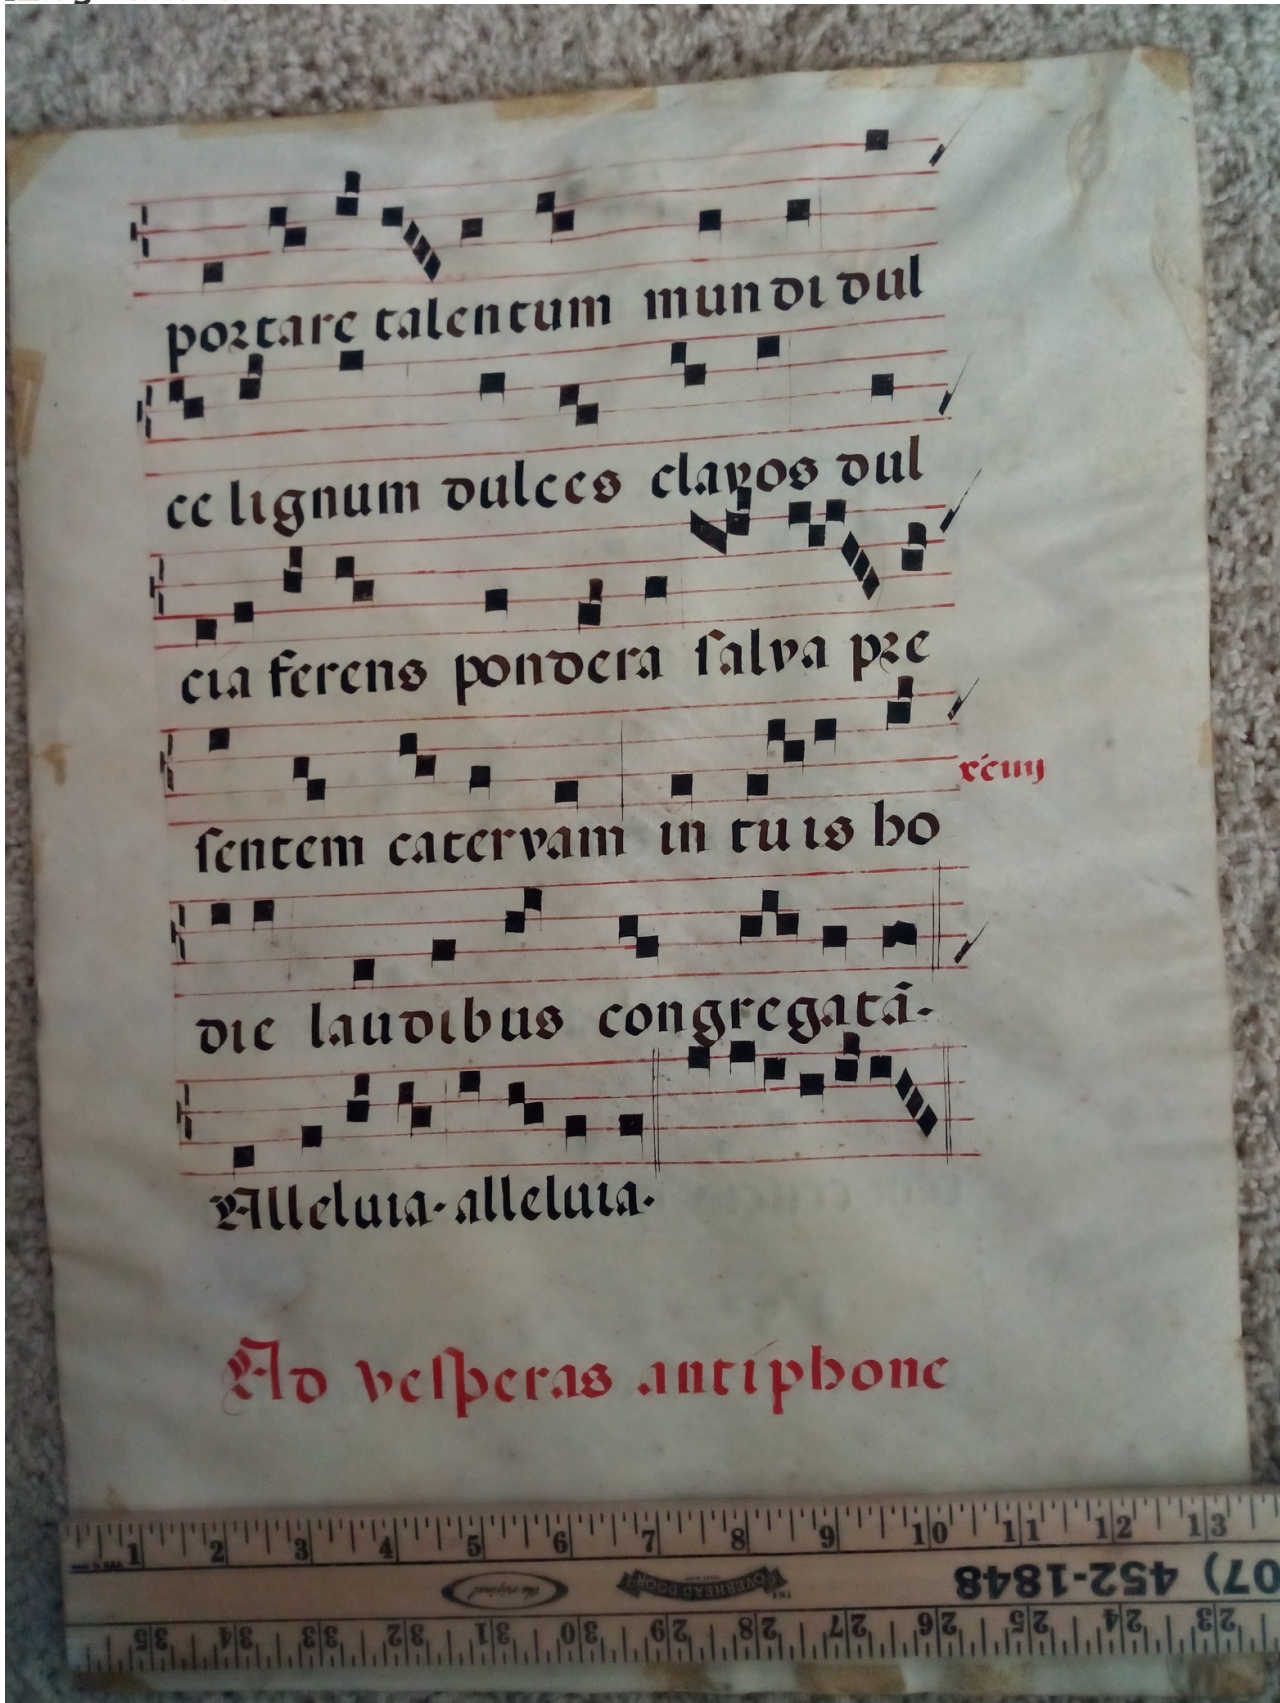 portare talentum mundi dul
ce lignum dulces clavos dul
cia ferens pondera salva pre
sentem catervam in tuis ho
die laudibus congregatā.
Alleluia. alleluia.
Ad vesperas antiphone
1 2 3 4 5 6 7 8 9 10 11 12 13
07) 452-1848
the original
THE OVERHEAD DOOR
35 34 33 32 31 30 29 28 27 26 25 24 23